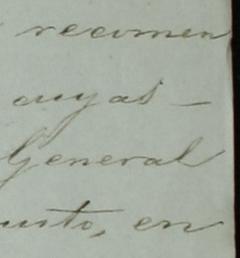 recomen
cuyas —
General
unto, en